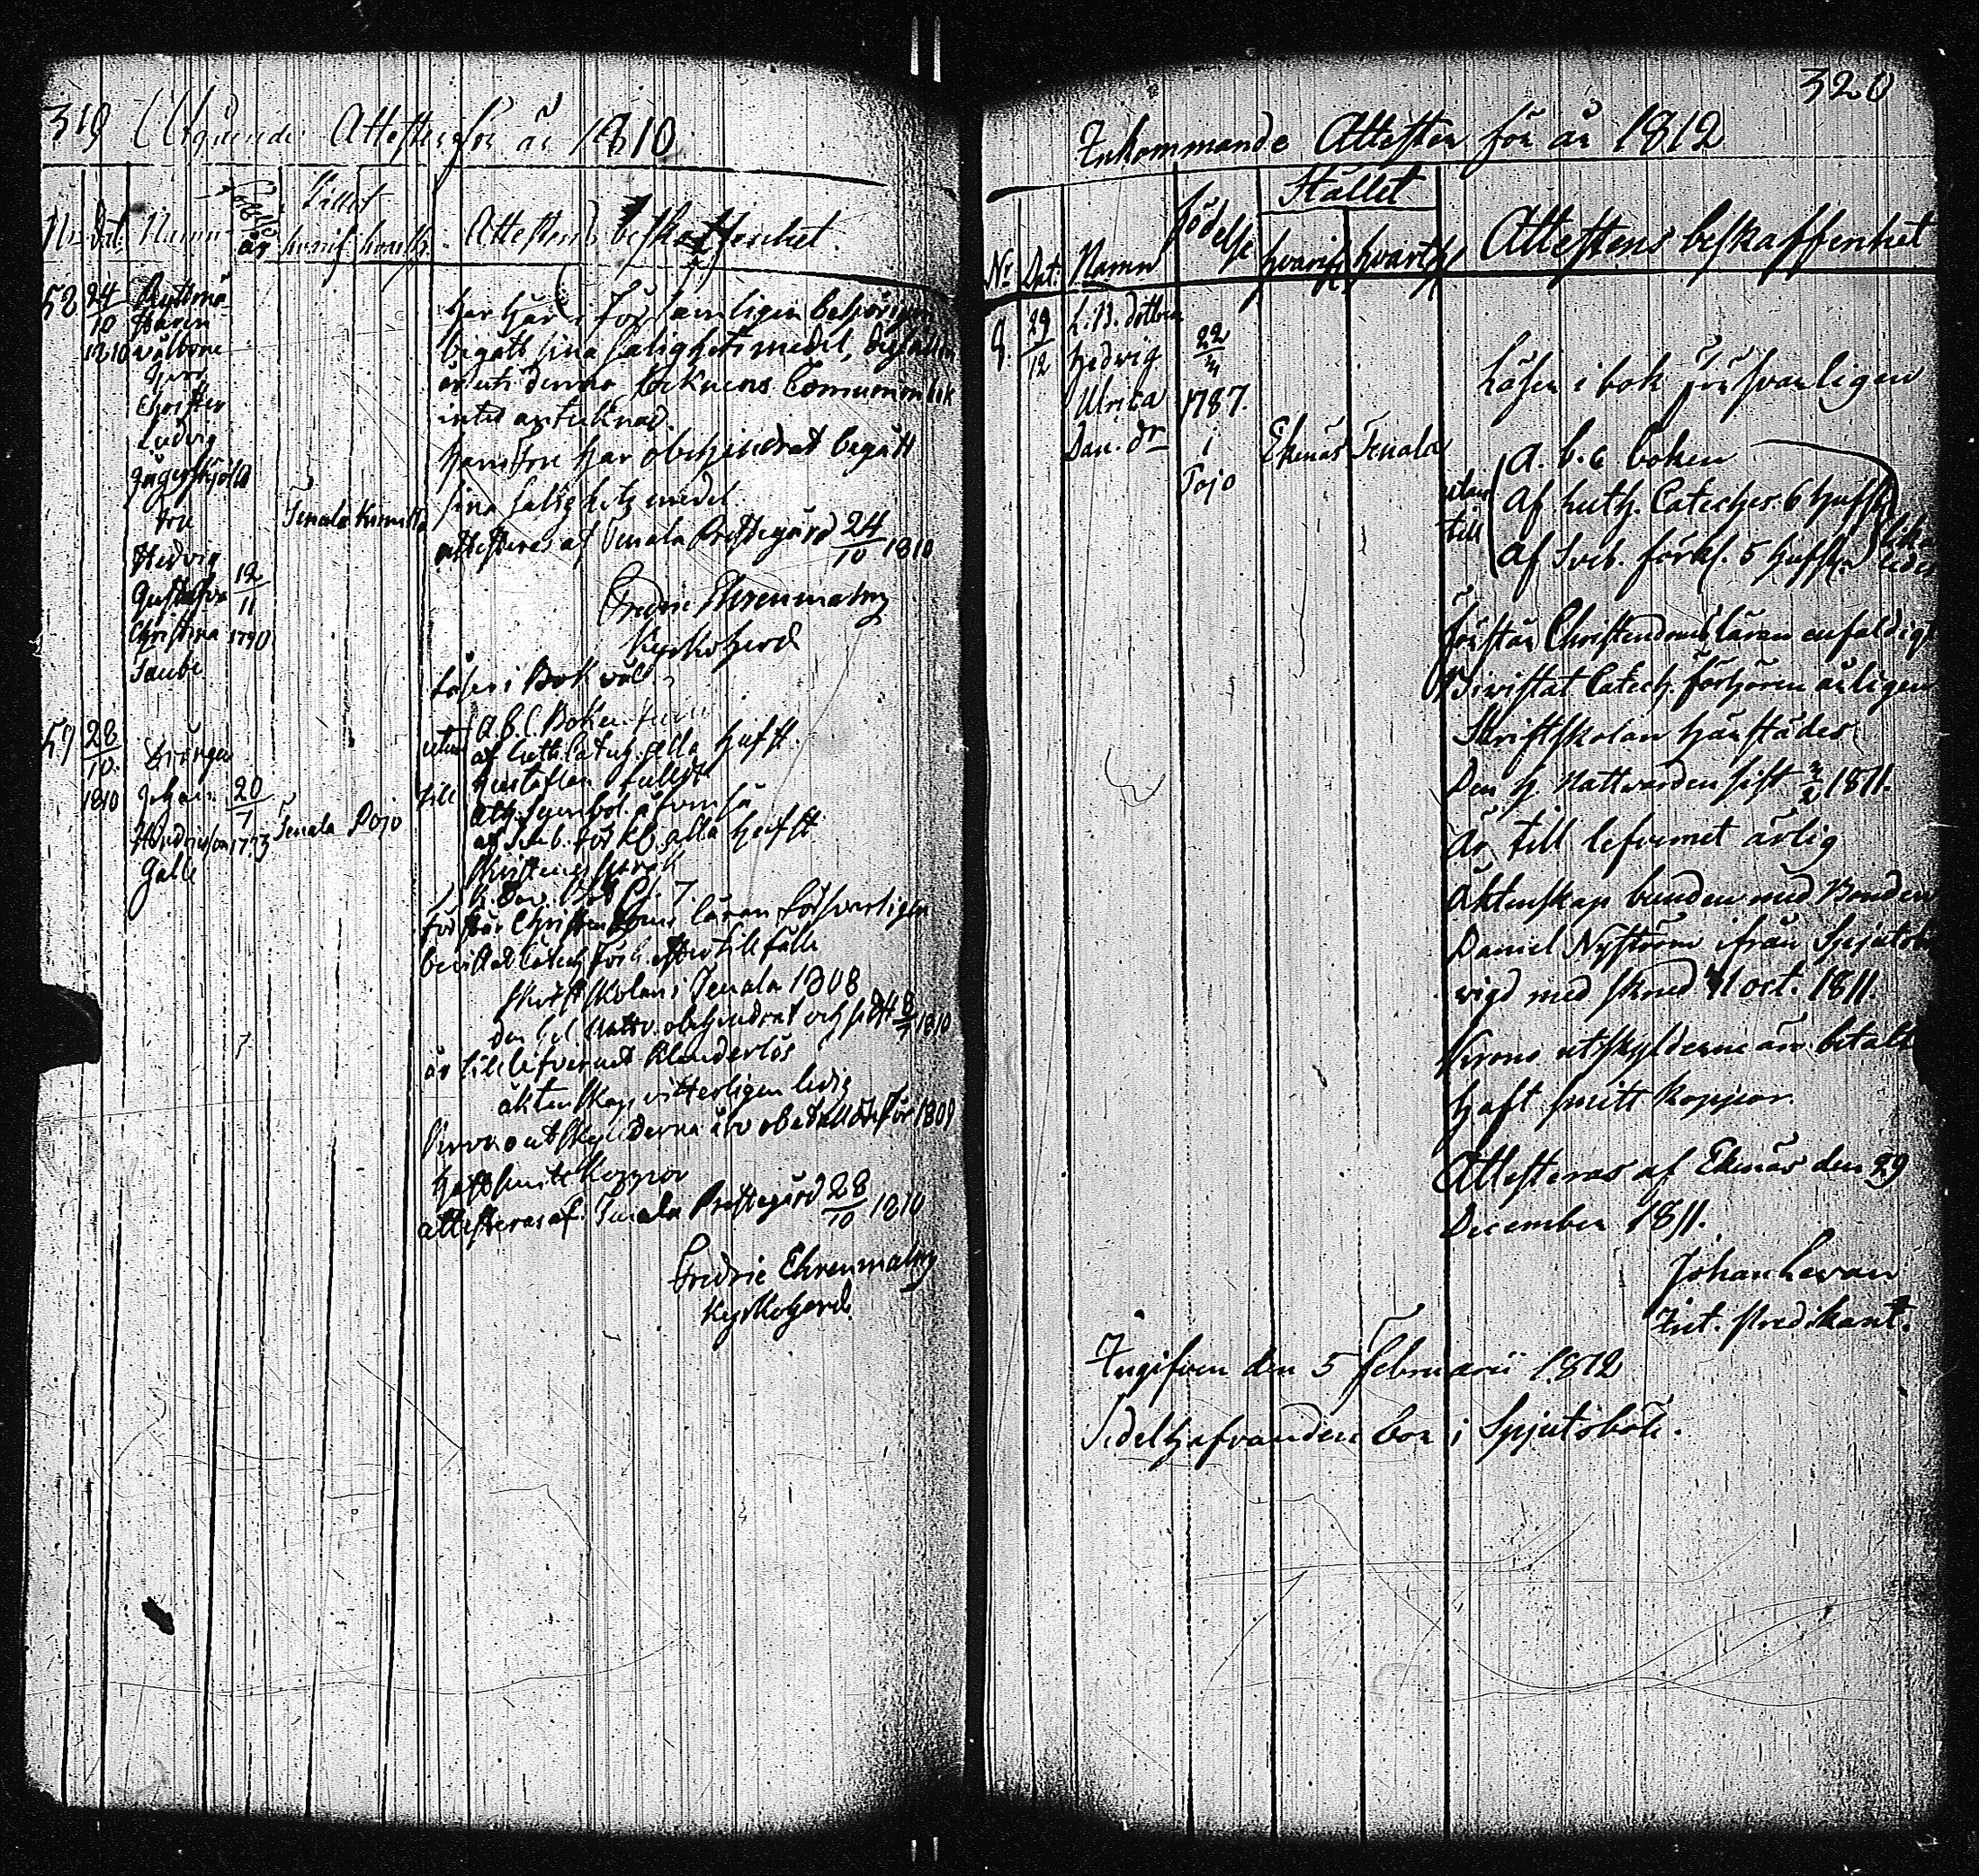 319 Utgående Attester för år 1810
Födelse Stället
Nr. Dat: Namn år hvarif. hvarth. Attestens beskaffenhet.
52 24/10 1810
Ryttmä.
Haren
välborne
Herr
Christer
Ludvig
Jägerskjöld
fru
Hedvig
Gustafva 12/11
Christina 1790
Taube
Tenala Kumilla
har här i Församligen behörigen
begått sina salighets medel,
är uti denna Soknens Communion bok
intet antecknad.
hans fru har obehindrat begått
sina salighets medel
attesteras af Tenala Prestegård 24/10 1810
Fredric Ehrenmalm
Kyrkoherd
57 28/10 1810
Drängen
Johan 20/1
Hindricsson 1773
Galle
Tenala Pojo
läser i Bok väl
utan till
A.B.C. Boken
af Luth. Catech. alla Hufst.
Hustaflan fullt
Ath. Symbol. äfven så
af Sveb. förkl. alla Hufst.
K. Dav. Bot Ps. 7.
förstår Christendoms läran försvarligen
bevistat Catech. Förh. efter tillfälle
skriftskolan i Tenala 1808
den hel. Nattv. obehindrat och sidst 8/7 1810
är till lefvernet klanderlös
äktenskap vitterligen ledig
Krono utskylderna äro obetalldte för 1809
haft smitt koppor
attesteras af Tenala Prestegård 28/10 1810
Fredric Ehrenmalm
Kyrkoherd.
320
Inkommande Attester för år 1812
Stället
Nr. Dat: Namn födelse hvarifr. hvarth. Attestens beskaffenhet
8. 29/12
L. B. dottern
Hedvig 22/4
Ulrica 1787.
Dan. dr i
Pojo
Ekenäs Tenala
Läser i bok försvarligen
utan till
A. b. c boken
Af Luth. Cateches. 6 Hufst.
Af Sveb. förkl. 5 Hufst.
Förstår Christendoms läran enfaldigt
Bivistat Catech. förhören årligen
Skriftskolan härstädes
Den h. Nattvarden sist 3/2 1811.
Är till lefvernet ärlig
Äktenskap bunden med Bonden
Daniel Nyström ifrån Spjutsb
vigd med sked 11 oct. 1811.
Krono utskylderne äro betalt
Haft smitt koppor.
Attesteras af Ekenäs den 29
December 1811.
Johan Levan
Int. predikant.
Ingifven den 5 Februarii 1812
Sedelhafvanden bor i Spjutsböle.